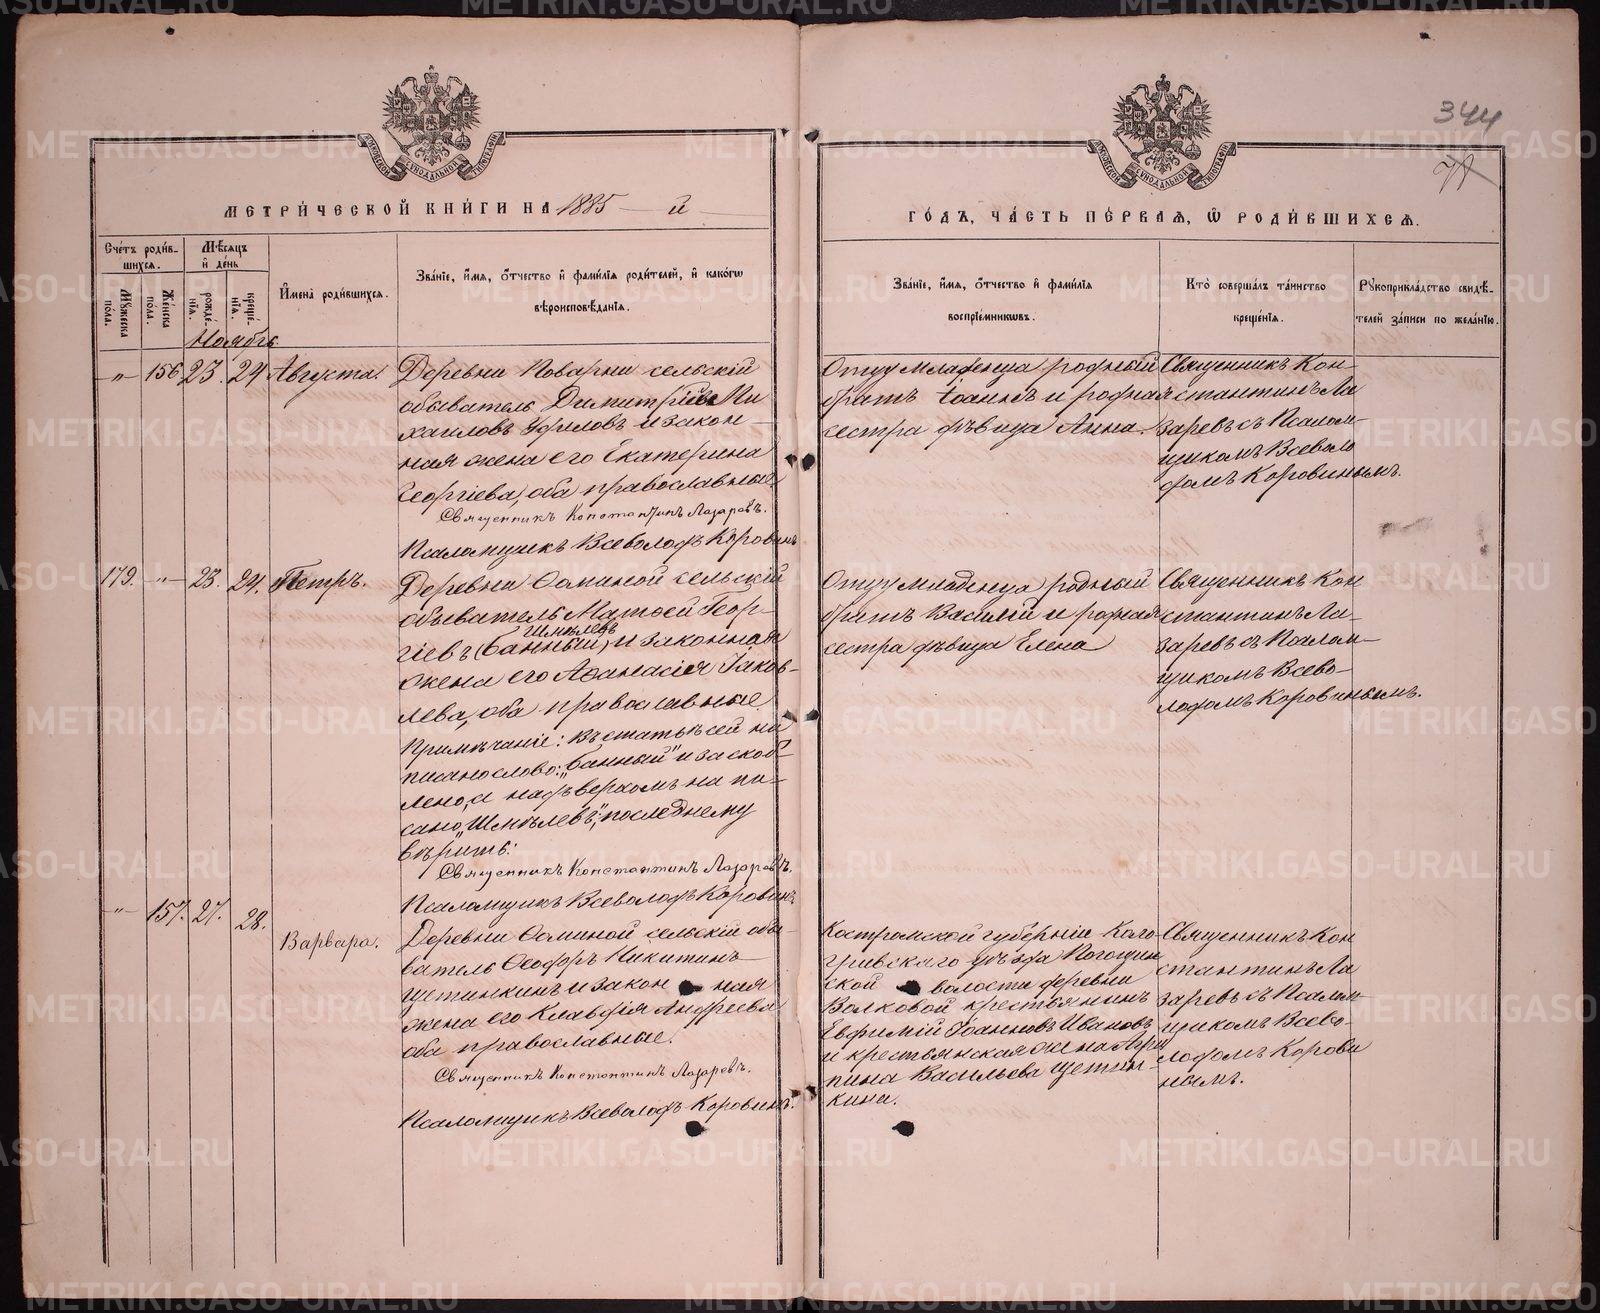 344
МЕТРИЧЕСКОЙ КНИГИ НА 1885 й
ГОДЪ, ЧАСТЬ ПЕРВАЯ, Ѡ РОДИВШИХСЯ.
Счетъ родив-
шихся.
Мужеска пола.
Женска пола.
Мѣсяцъ
и день
рожде-
нія.
креще-
нія.
Имена родившихся.
Званіе, имя, отчество и фамилія родителей, и какогѡ
вѣроисповѣданія.
Званіе, имя, отчество и фамилія
воспріемниковъ.
Кто совершалъ таинство
крещенія.
Рукоприкладство свидѣ-
телей записи по желанію.
Ноябрь
—„— 156 23. 24 Августа.
Деревни Поварни сельскій
обыватель Димитрій Ми
хаиловъ Уфиловъ и закон-
ная жена его Екатерина
Георгіева, оба православные.
Священникъ Константинъ Лазаревъ.
Псаломщикъ Всеволодъ Коровинъ
Отцу младенца родный
братъ Іоаннъ и родная
сестра дѣвица Анна.
Священникъ Кон-
стантинъ Ла
заревъ съ Псалом-
щикомъ Всеволо
домъ Коровинымъ.
179. —„— 23. 24. Петръ.
Деревни Осминой сельскій
обыватель Матѳей Геор-
Шмѣлевъ
гіевъ (банный), и законная
жена его Аѳанасія Іаков-
лева, оба православные.
Примѣчаніе: въ статьѣ сей на
писано слово: „банный" и заскоб-
лено, а надъ верхомъ на пи-
сано „Шмѣлевъ", послѣднему
вѣрить.
Священникъ Константинъ Лазаревъ.
Псаломщикъ Всеволодъ Коровинъ
Отцу младенца родный
братъ Василій и родная
сестра дѣвица Елена
Священникъ Кон
стантинъ Ла-
заревъ съ Псалом-
щикомъ Всево-
лодомъ Коровинымъ.
—„— 157. 27. 28. Варвара.
Деревни Осминой сельскій обы-
ватель Ѳеодоръ Никитинъ
Щетинкинъ и закон ная
жена его Клавдія Андреева
оба православные.
Священникъ Константинъ Лазаревъ.
Псаломщикъ Всеволодъ Коровинъ.
Костромской губерніи Коло-
гривскаго уѣзда
ской волости деревни
Волковой крестьянинъ
Евфимій Іоанновъ Ивановъ
и крестьянская жена Агри
пина Васильева Щетин-
кина.
Священникъ Кон
стантинъ Ла
заревъ съ Псалом-
щикомъ Всево-
лодомъ Корови
нымъ.
METRIKI.GASO-URAL.RU